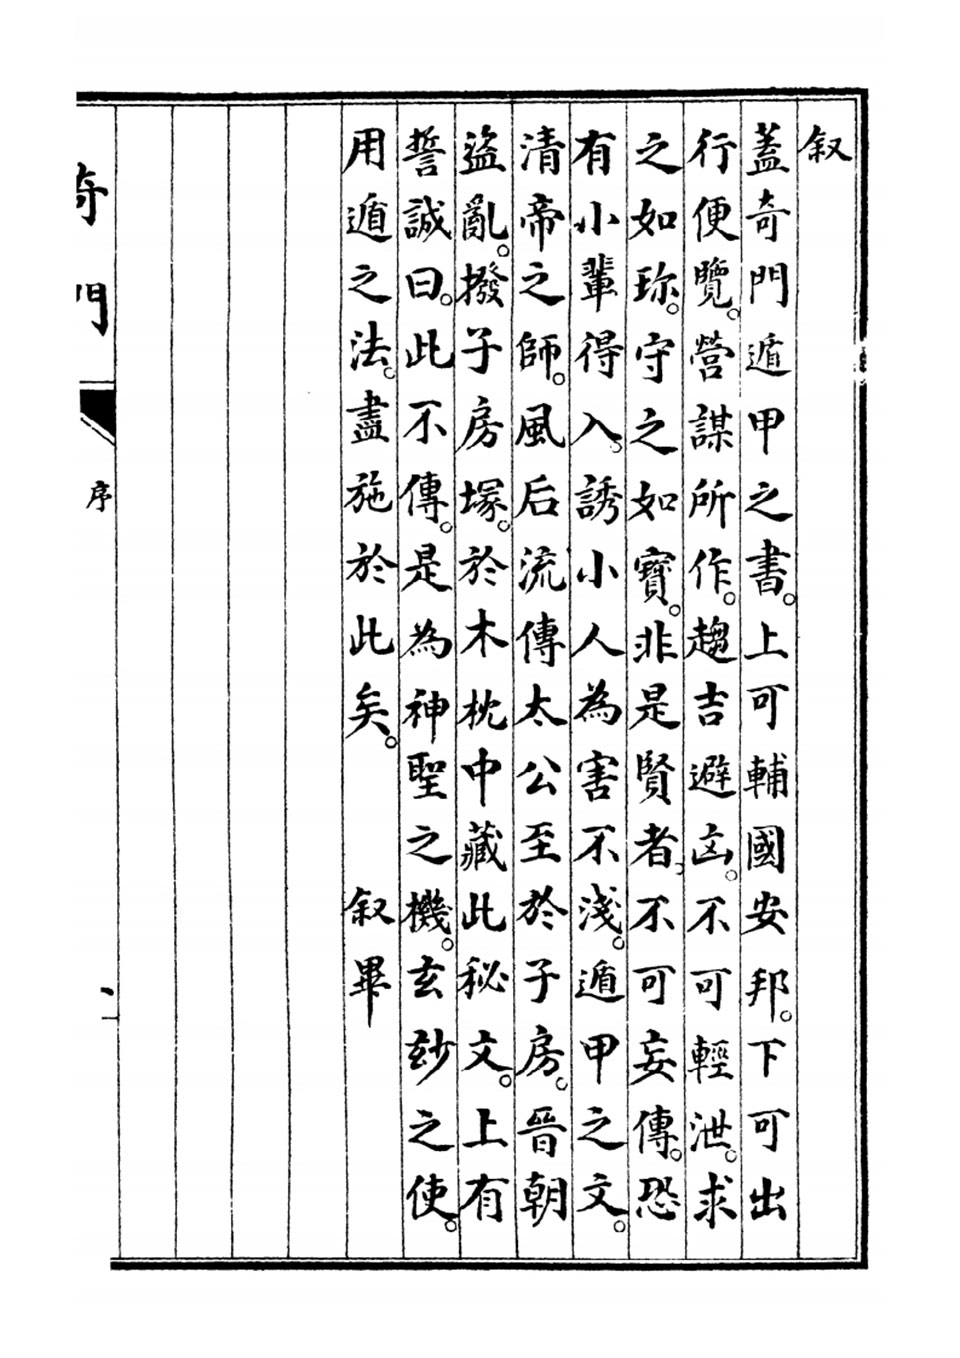 叙
蓋奇門遁甲之書。上可輔國安邦。下可出
行便覽。營謀所作。趨吉避凶。不可輕泄。求
之如珎。守之如寳。非是賢者。不可妄傳。恐
有小輩得入。誘小人為害不淺。遁甲之文。
清帝之師。風后流傳太公至於子房。晉朝
盜亂。撥子房塚。於木枕中藏此秘文。上有
誓誠曰。此不傳。是為神聖之機。玄玅之使。
用遁之法。盡施於此矣。 叙畢
奇門 序 一